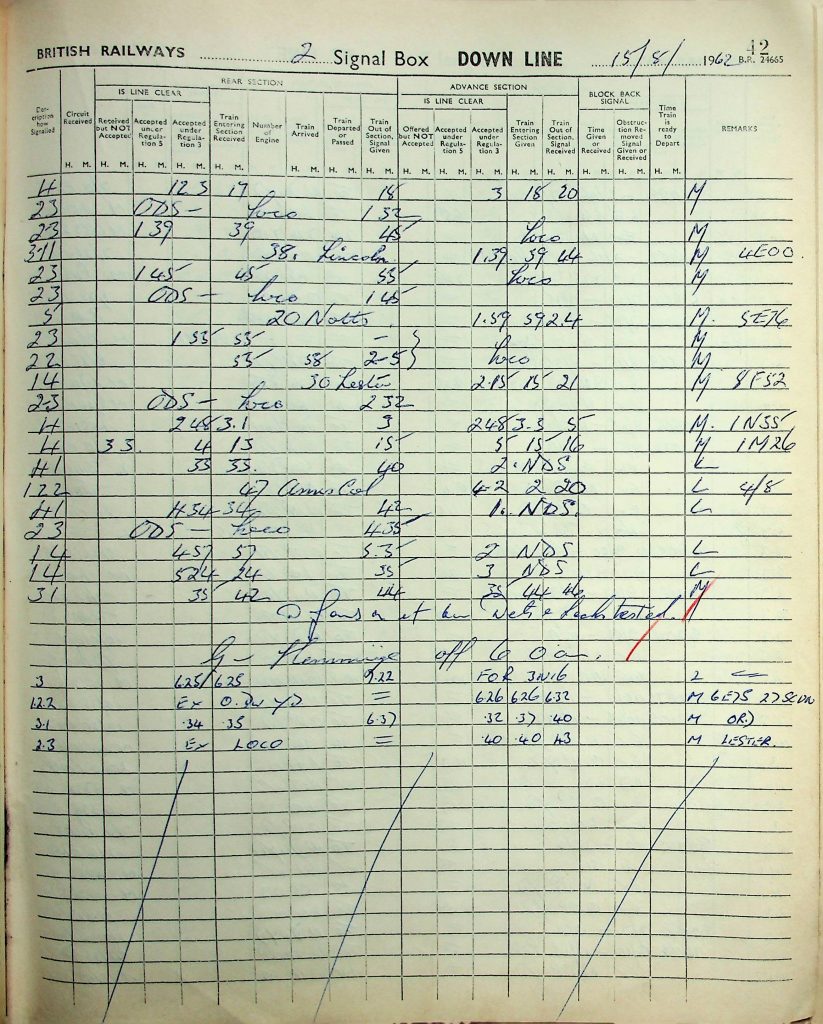 42
BRITISH RAILWAYS 2 Signal Box DOWN LINE 15/8/ 1962 B.R. 24665
REAR SECTION ADVANCE SECTION BLOCK BACK SIGNAL
IS LINE CLEAR IS LINE CLEAR
Description how Signalled Circuit Received Received but NOT Accepted Accepted under Regulation 5 Accepted under Regulation 3 Train Entering Section Received Number of Engine Train Arrived Train Departed or Passed Train Out of Section, Signal Given Offered but NOT Accepted Accepted under Regulation 5 Accepted under Regulation 3 Train Entering Section Given Train Out of Section, Signal Received Time Given or Received Obstruction Removed Signal Given or Received Time Train is ready to Depart REMARKS
H. M. H. M. H. M. H. M. H. M. H. M. H. M. H. M. H. M. H. M. H. M. H. M. H. M. H. M. H. M. H. M.
4 12 5 17 18 3 18 20 M
23 ODS — Loco 1 32
23 1 39 39 45 Loco M
3-11 38. Lincoln. 1.39. 39 44 M 4E00.
23 1 45 45 55 Loco M
23 ODS — Loco 1 45
5 20 Notts. 1.59 59 2.4 M. 5E76
23 1 55 55 — M
22 55 58 2-5 Loco M
14 30 Lester 2.15 15 21 M 8F52
2-3 ODS — Loco 2 32
4 2 48 3.1 3 2 48 3.3 5 M. 1N35
4 3 3. 4 13 15 5 15 16 M 1M26
41 33 33. 40 2. NDS L
122 47 4-2 2 20 L 4/8
41 4 34 34 42 1. NDS. L
23 ODS — Loco 4.35
14 4 57 57 5.3 2 NDS L
14 5 24 24 35 3 NDS L
31 35 42 44 35 44 46 M
tested.
G— off 6 0 am.
3 625 625 7.22 FOR 3N16 2 ⇐
1.2.2 EX O. DN YD = 626 626 632 M 6E75 27 SCUN
3.1 .34 .35 6.37 .32 .37 .40 M ORD
2.3 EX LOCO = .40 .40 43 M LESTER.